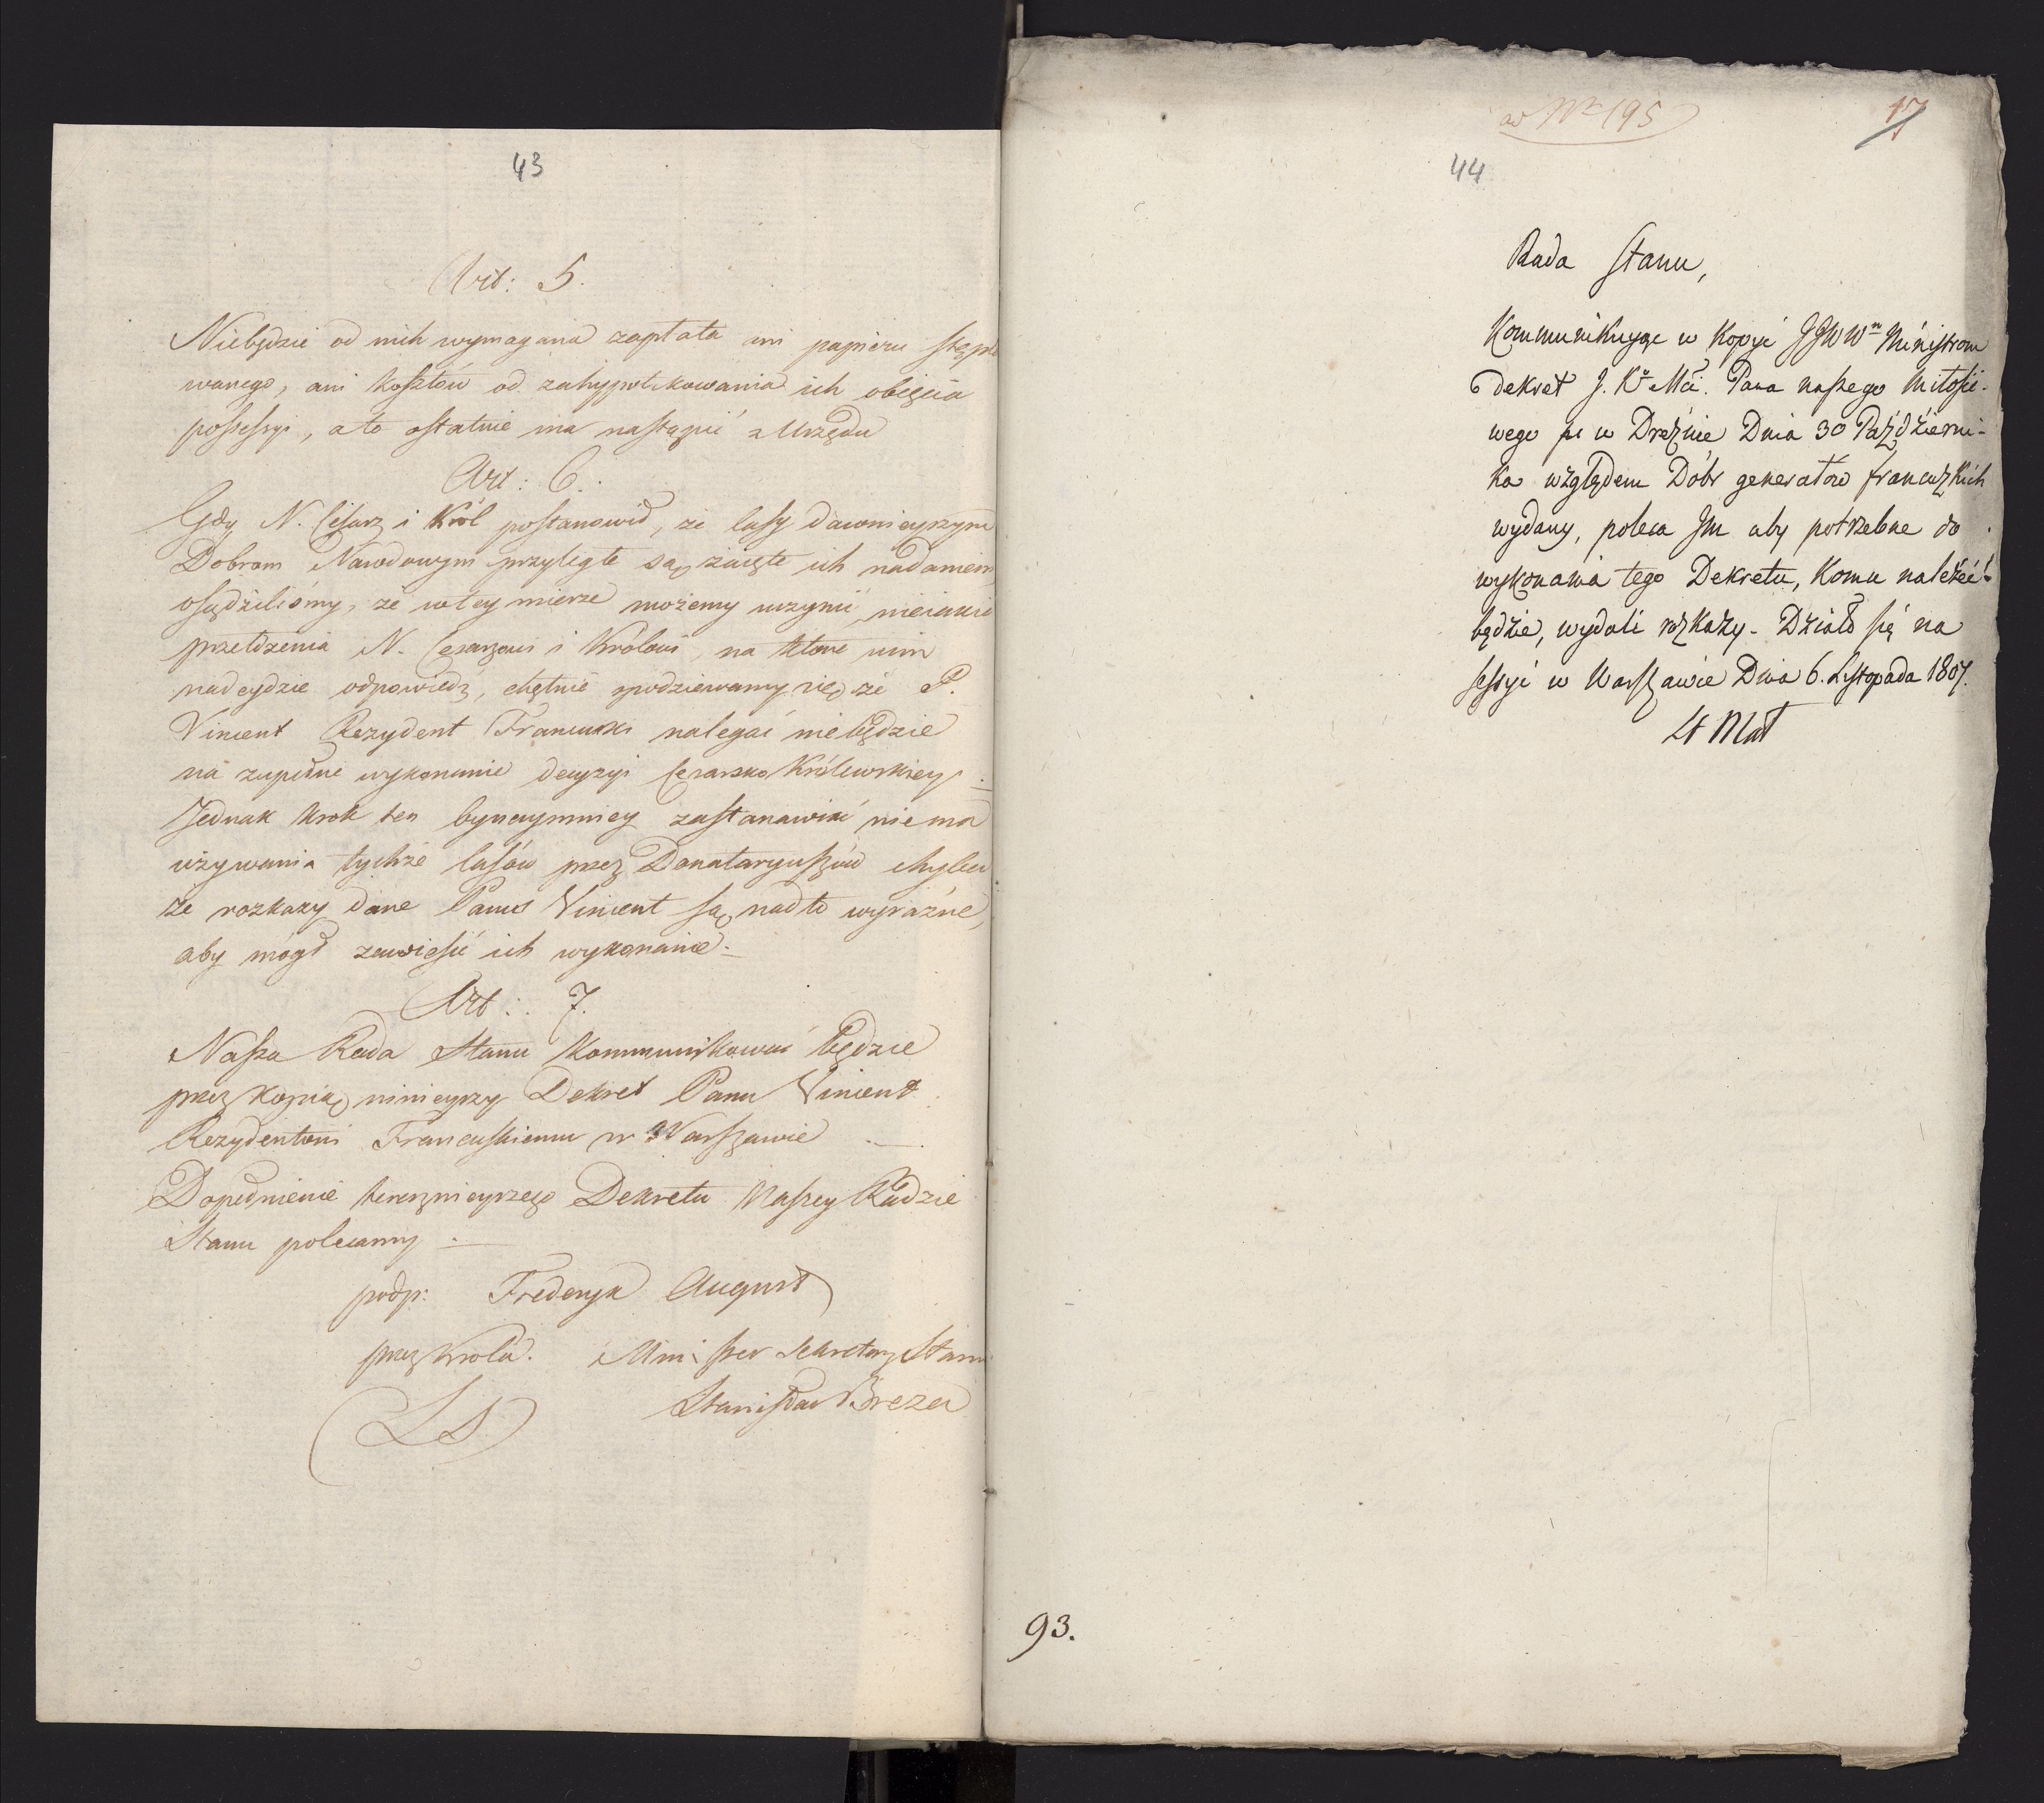 43
Art: 5.
Niebędzie od nich wymagana zapłata ani papieru stęplo
wanego, ani kosztów od zahypotekowania ich obięcia
possessyi, a to ostatnie ma nastąpić z Urzędu
Art: 6.
Gdy N. Cesarz i Król postanowił, że lasy dawnieyszym
Dobrom Narodowym przyległe są zaięte ich nadaniem
osądziliśmy, że w tey mierze możemy uczynić nieiakie
przełożenia N. Cesarzowi i Królowi, na które nim
nadeydzie odpowiedź, chętnie spodziewamy się, że P.
Vincent Rezydent Francuski nalegać niebędzie
na zupełne wykonanie decyzyi Cesarsko Królewskiey.
Jednak krok ten bynaymniey zastanawiać niema
używania tychże lasów przez Donataryuszów
że rozkazy dane Panu Vincent są nadto wyraźne,
aby mógł zawiesić ich wykonanie.
Art: 7.
Nasza Rada Stanu kommunikować będzie
przez kopią ninieyszy Dekret Panu Vincent
Rezydentowi Francuskiemu w Warszawie
Dopełnienie ninieyszego Dekretu Naszey Radzie
Stanu polecamy
podp: Frederyk August
przez Króla. Minister Sekretarz Stanu
(LS) Stanisław Breza
ad Nr 195
17
44
Rada Stanu,
Kommunikuiąc w Kopyi JJWWm Ministrom
dekret J. K. Mci. Pana naszego Miłości-
wego w Dreznie Dnia 30 Paźdźierni-
ka względem Dóbr generałów francuzkich
wydany, poleca Im aby potrzebne do
wykonania tego Dekretu, Komu należeć
będzie, wydali rozkazy. Działo się na
sessyi w Warszawie Dnia 6. Listopada 1807.
93.